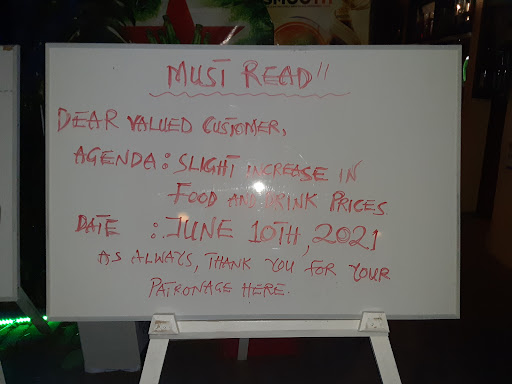 SMOOTH
MUST READ!!
DEAR VALUED CUSTOMER,
AGENDA: SLIGHT INCREASE IN
FOOD AND DRINK PRICES
DATE : JUNE 10TH, 2021
AS ALWAYS, THANK YOU FOR YOUR
PATRONAGE HERE.